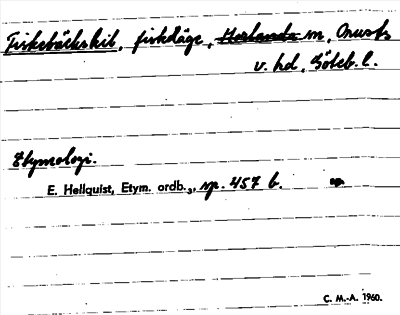 Fiskebäckskil, fiskeläge, Morlanda m, Orusts
v. hd, Göteb. l.
Etymologi.
E. Hellquist, Etym. ordb.3, sp. 457 b.
C. M.-A. 1960.